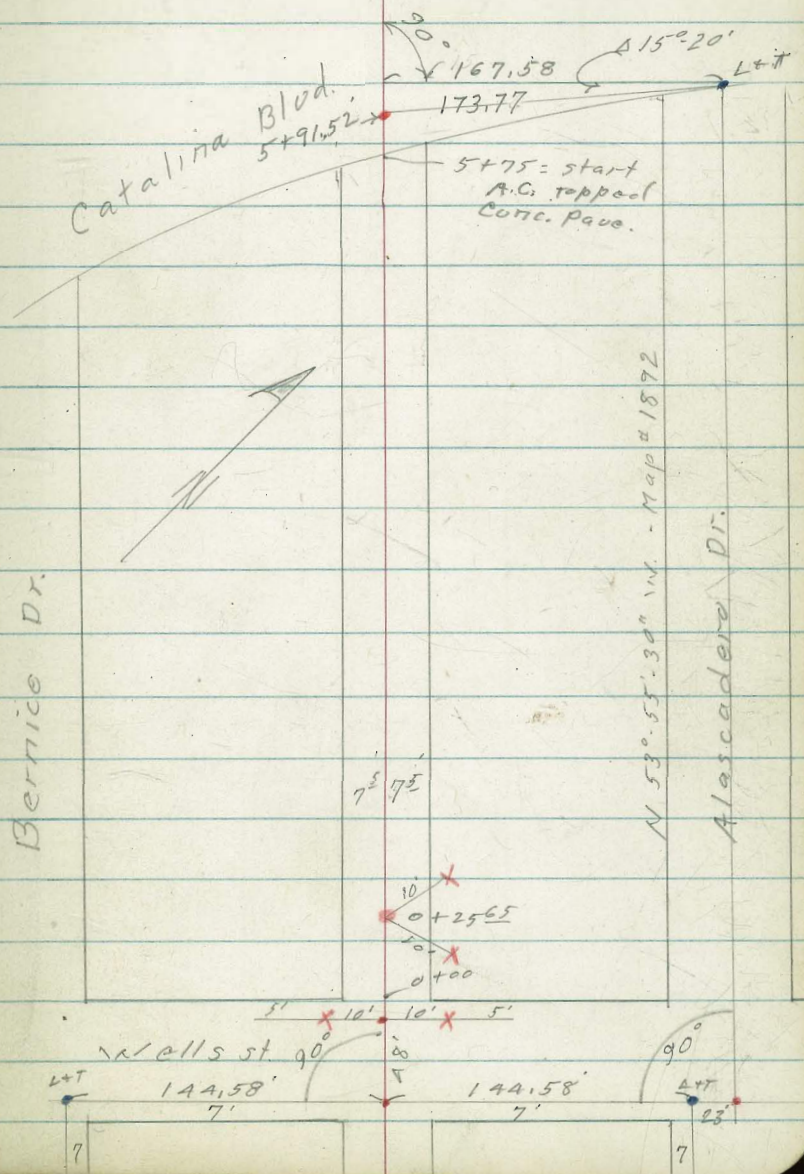 90°
167.58
Δ 15°-20'
L+T
Catalina Blvd.
5+91.52'
173.77
5+75 = start
A.C. topped
Conc. Pave.
N
N 53°-55'-30" W. - Map # 1892
Alascadero Dr.
Bernice Dr.
7 5' 7 5'
10'
0+25 65
0+00
5' 10' 10' 5'
Wells st. 90° 8' 90°
L+T 144.58' 144.58' L+T
7' 7' 23'
7 7